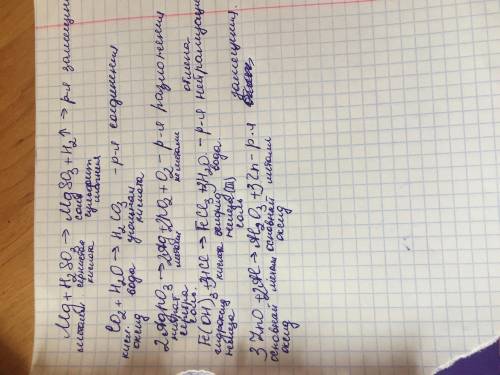 Mg + H₂SO₃ → MgSO₃ + H₂↑ → р-я замещен
металл кислота соль сульфит магния
CO₂ + H₂O → H₂CO₃ - р-я соединения
кисл. оксид вода угольная кислота
2AgNO₃ → 2Ag + 2NO₂ + O₂ - р-я разложения
нитрат серебра соль металл неметалл
обмена
Fe(OH)₃ + 3HCl → FeCl₃ + 3H₂O - р-я нейтрализации
гидроксид железа кислота хлорид железа (III) соль вода
3ZnO + 2Al → Al₂O₃ + 3Zn - р-я замещения.
основный оксид металл основный оксид металл